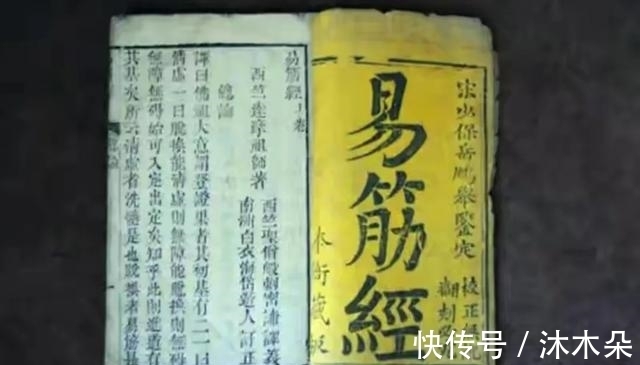 宋少保岳鵬舉鑒定
校正
翻刻
易筋經
本衙藏板
易筋經上卷
西竺達摩祖師著
西竺聖僧般剌密諦譯義
南洲白衣海岱遊人訂正
總論
譯曰佛祖大意謂登證果者其初基有二一曰
清虛一曰脫換能清虛則無障能脫換則無碍
無障無碍始可入定出定矣知乎此則進道有
其基矣所云清虛者洗髓是也脫換者易筋是
快传号／沐木朵